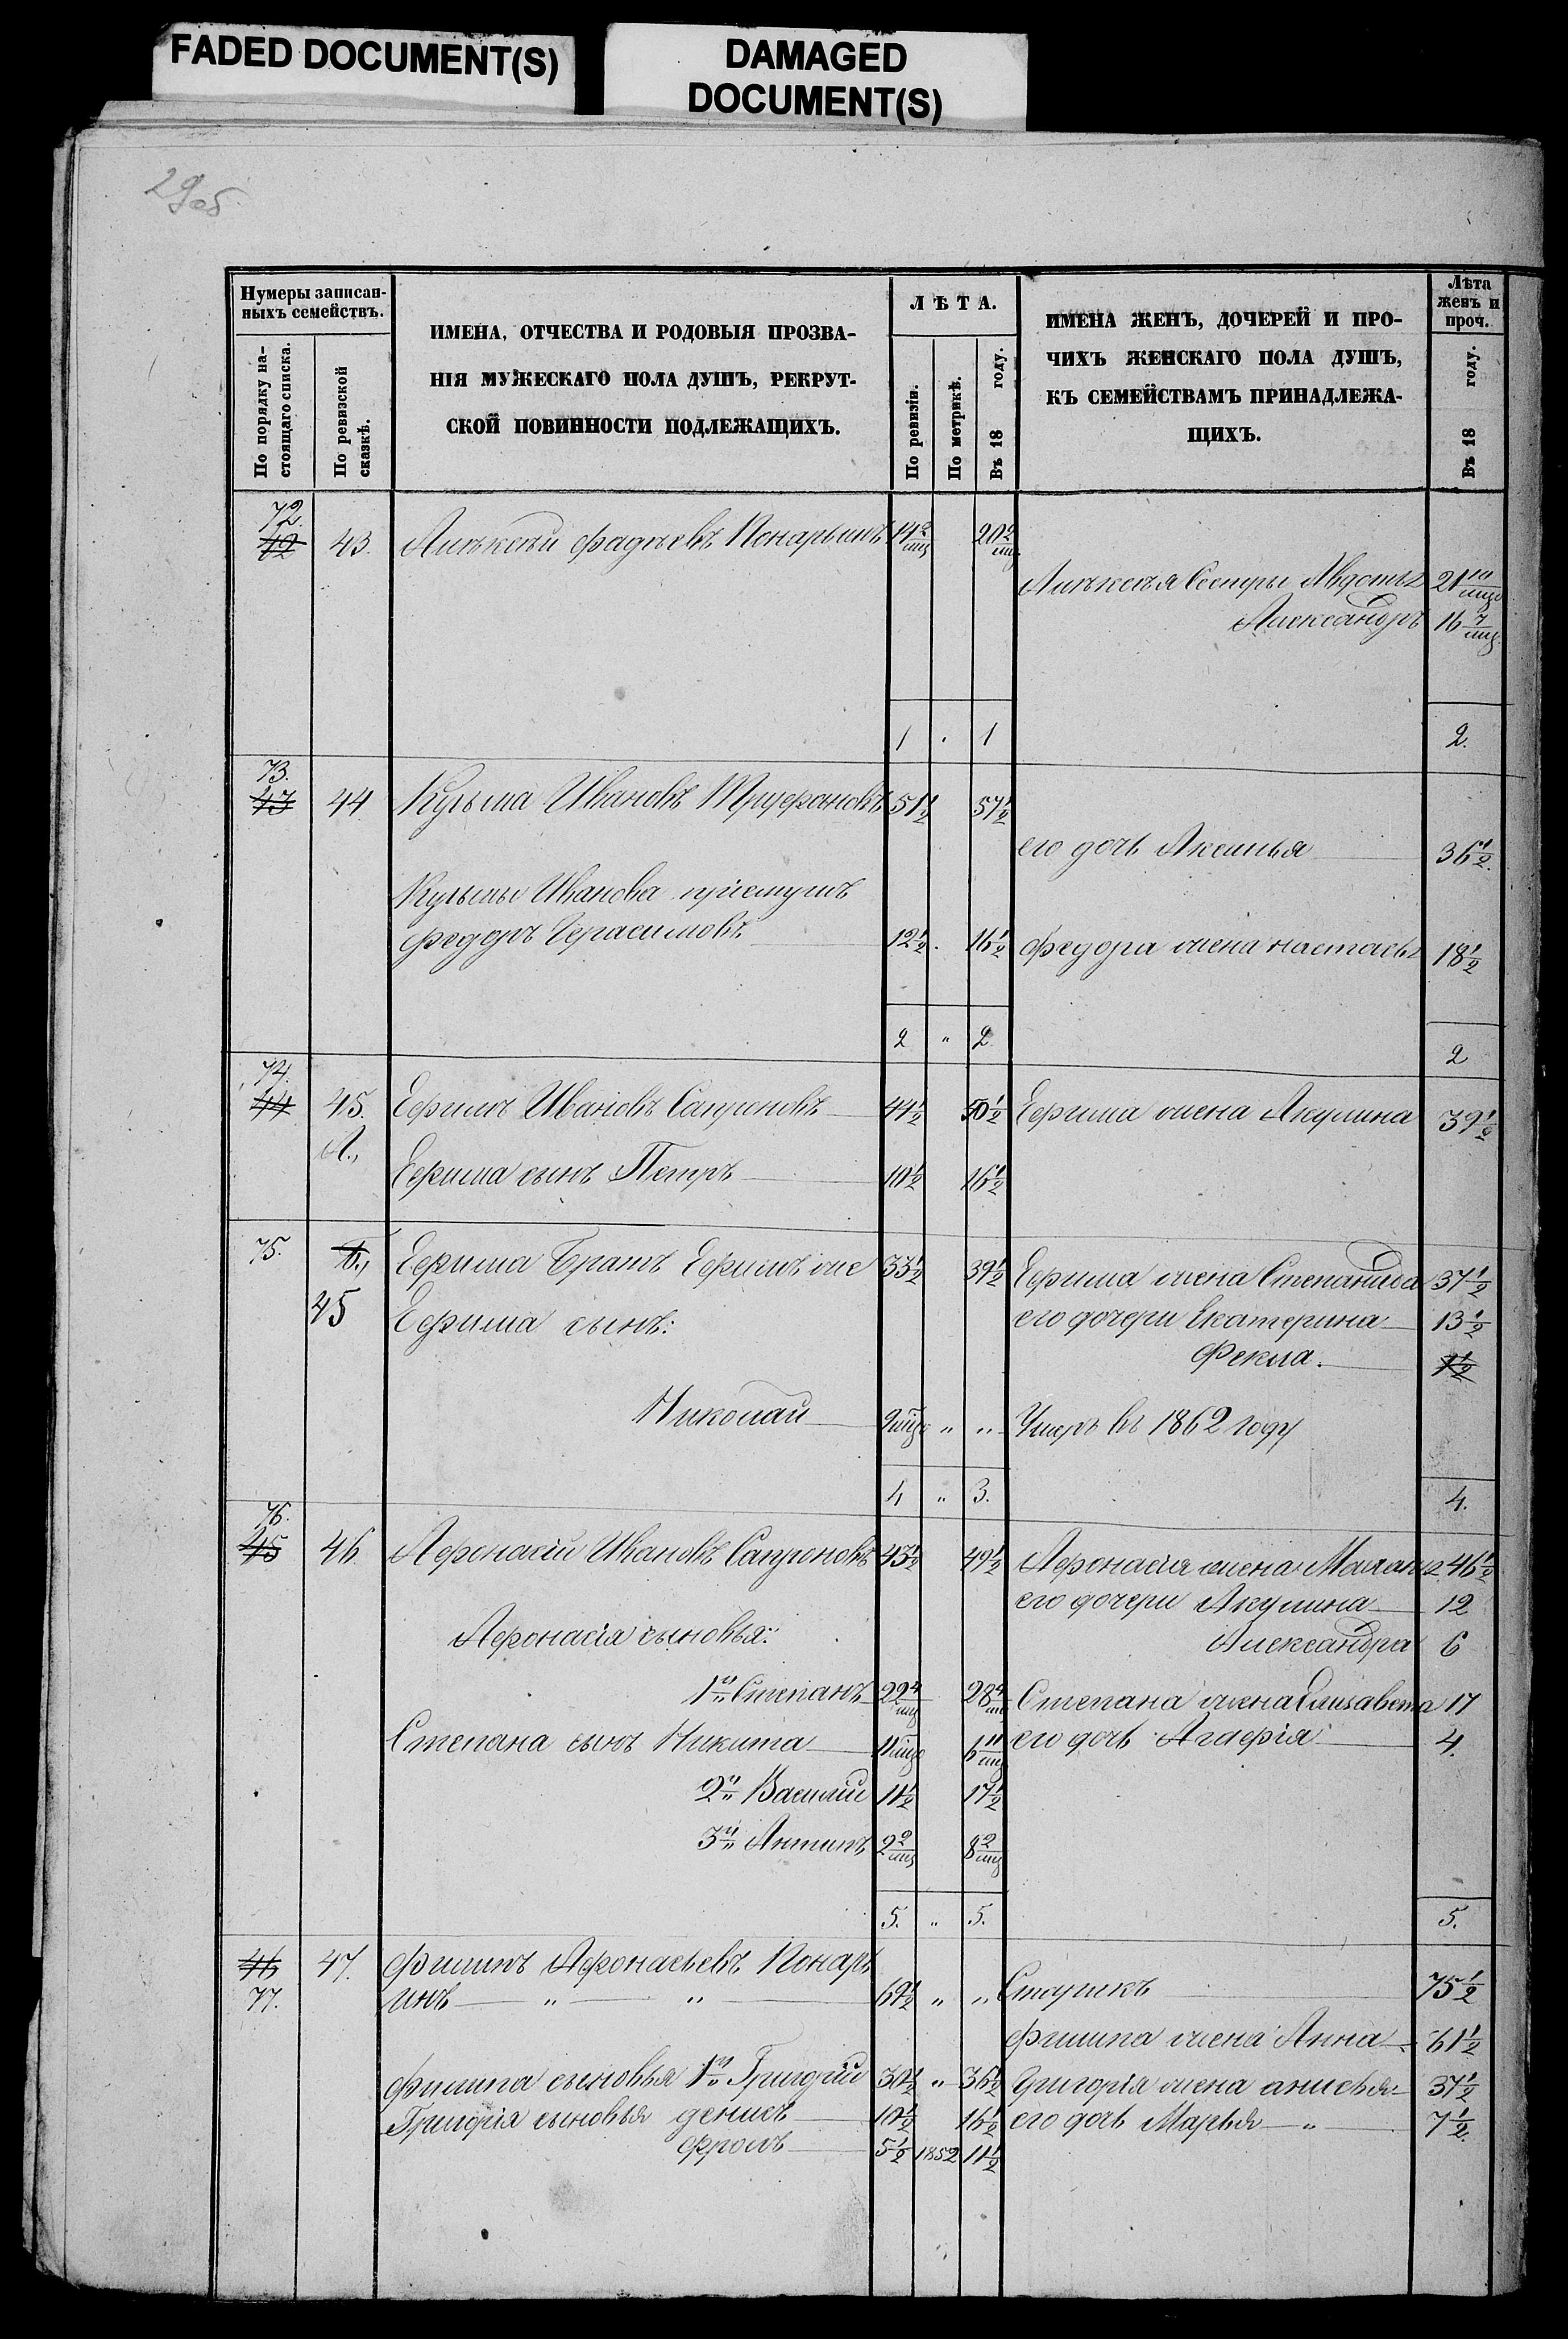 FADED DOCUMENT(S)
DAMAGED
DOCUMENT(S)
29об
Нумеры записан-
ныхъ семействъ.
По порядку на-
стоящаго списка.
По ревизской
сказкѣ.
ИМЕНА, ОТЧЕСТВА И РОДОВЫЯ ПРОЗВА-
НІЯ МУЖЕСКАГО ПОЛА ДУШЪ, РЕКРУТ-
СКОЙ ПОВИННОСТИ ПОДЛЕЖАЩИХЪ.
ЛѢТА.
По ревизіи.
По метрикѣ.
Въ 18 году.
ИМЕНА ЖЕНЪ, ДОЧЕРЕЙ И ПРО-
ЧИХЪ ЖЕНСКАГО ПОЛА ДУШЪ,
КЪ СЕМЕЙСТВАМЪ ПРИНАДЛЕЖА-
ЩИХЪ.
Лѣта
женъ и
проч.
Въ 18 году.
72.
42 43. Алѣксѣй Фадѣевъ Понарьинъ 14 2/мц 20 2/мц
Алѣксѣя Сестры Авдотья 21 10/мцв
Александръ 16 7/мц
1 . 1 2.
73.
43 44 Кузьма Ивановъ Труфановъ 51 1/2 57 1/2
его дочь Аксинья 36 1/2
Кузьмы Иванова приемушъ
Федоръ Герасимовъ 12 1/2 . 16 1/2 Федора жена настасья 18 1/2
2 " 2 2
74.
44 45. Ефимъ Ивановъ Сапроновъ 44 1/2 50 1/2 Ефима жена Акулина 39 1/2
А.,
Ефима сынъ Петръ 10 1/2 16 1/2
75. Б., Ефима Братъ Ефимъ же 33 1/2 39 1/2 Ефима жена Степанида 37 1/2
45 Ефима сынъ: его дочери Екатерина 13 1/2
Фекла. 1 1/2
Николай 9 мцв " " Умеръ въ 1862 году
4 " 3. 4.
76.
45 46 Афонасій Ивановъ Сапроновъ 43 1/2 49 1/2 Афонасія жена Маланья 46 1/2
его дочери Акулина 12
Афонасія сыновья: Александра 6
1й Степанъ 22 4/мц 28 4/мц Степана жена Елизавета 17
Степана сынъ Никита 11 мцв 6 11/мц его дочь Агафія 4.
2й Василій 11 1/2 17 1/2
3й Антипъ 2 2/мц 8 2/мц
5. " 5. 5.
46 47. Филипъ Афонасьевъ Понарь
77. инъ " " 69 1/2 " " Старикъ 75 1/2
Филипа жена Анна 61 1/2
Филипа сыновья 1й Григорій 30 1/2 " 36 1/2 Григорія жена анисья 37 1/2
Григорія сыновья денисъ 10 1/2 16 1/2 его дочь Марья " 7 1/2
Фролъ 5 1/2 1852 11 1/2